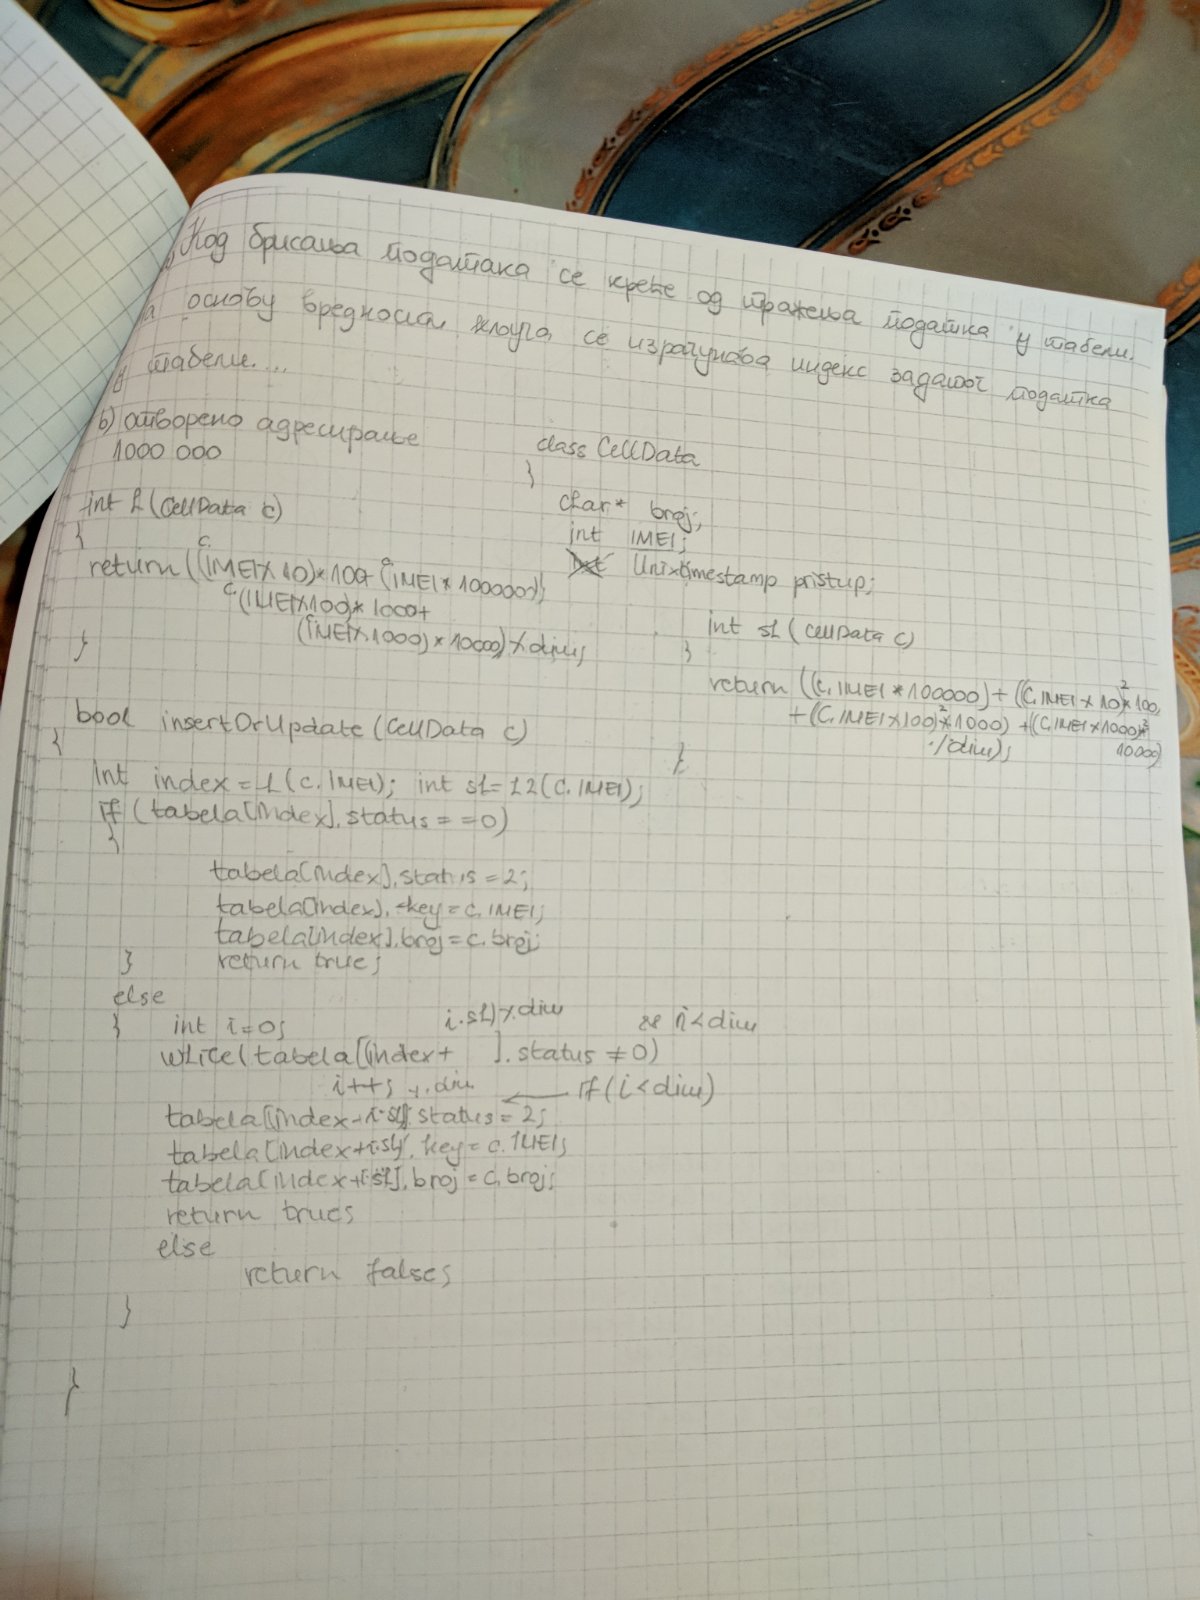 Код брисања података се креће од тражења податка у табели.
на основу вредности кључа, се израчунава индекс задатог податка
у табели....
б) отворено адресирање
1000 000
class CellData
{
char* broj;
int IMEI;
Unixtimestamp pristup;
int h(CellData c)
{
return ((IMEI % 10)*100+(IMEI*100000);
c(IMEI%100)*1000+
(IMEI%1000)*10000) % dim;
}
int sh(CellData c)
{
return ((c.IMEI*100000)+((c.IMEI%10)²*100,
+(c.IMEI%100)²*1000)+((c.IMEI%1000)²*
10000)
%dim);
}
bool insertOrUpdate(CellData c)
{
int index=h(c.IMEI); int sh=h2(c.IMEI);
if (tabela[index].status==0)
{
tabela[index].status=2;
tabela[index].key=c.IMEI;
tabela[index].broj=c.broj;
return true;
}
else
{ int i=0;
i·sh)%dim && i<dim
while(tabela[(index+ ].status≠0)
i++; %dim ← if(i<dim)
tabela[(index+i·sh)].status=2;
tabela[index+i·sh].key=c.IMEI;
tabela[index+i·sh].broj=c.broj;
return true;
else
return false;
}
}